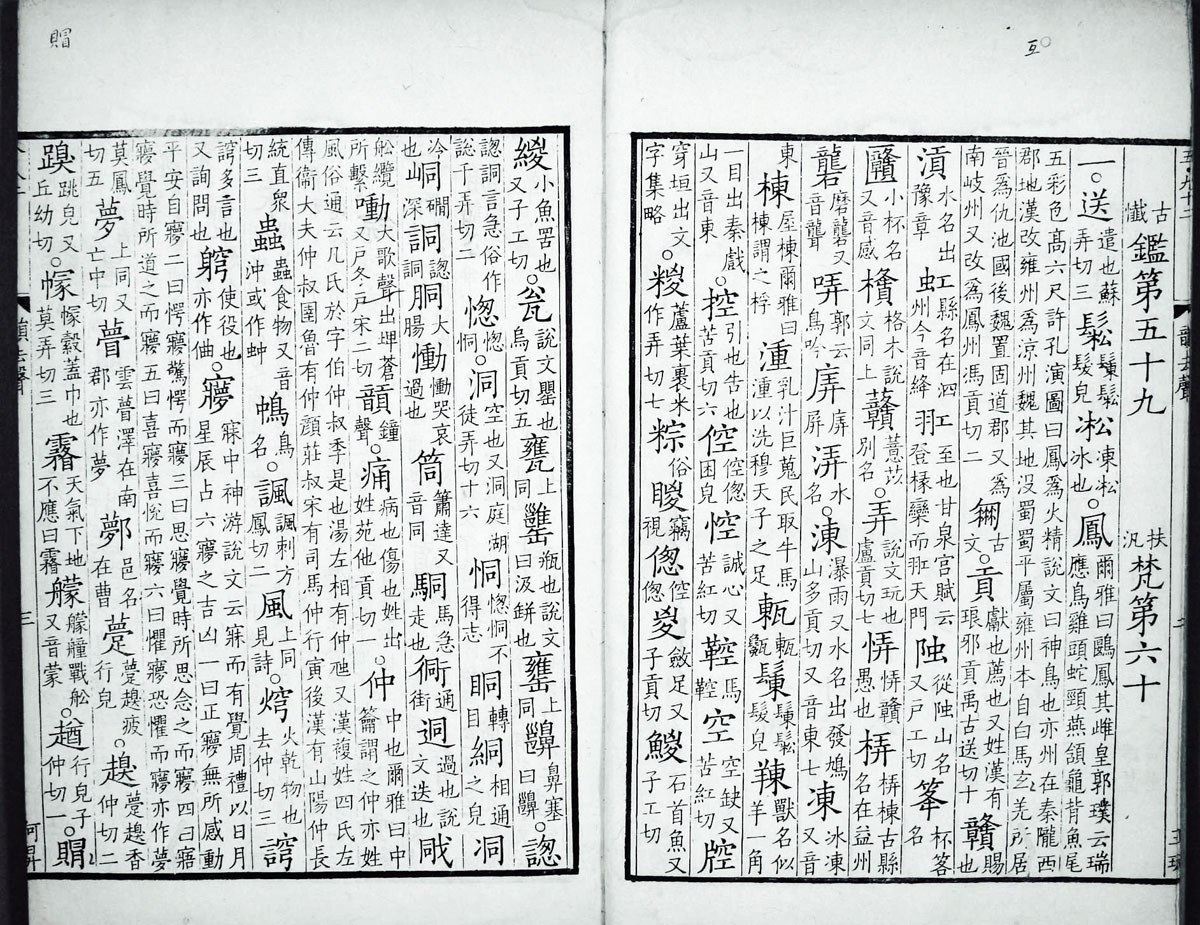 古懺鑑第五十九 扶汎梵第六十
一。送遣也蘇弄切三鬆鬆鬆髮皃凇凍凇冰也。鳳爾雅曰鶠鳳其雌皇郭璞云瑞應鳥雞頭蛇頸燕頷龜背魚尾
五彩色高六尺許孔演圖曰鳳爲火精說文曰神鳥也亦州在秦隴西郡地漢改雍州爲涼州魏其地没蜀蜀平屬雍州本自白馬玄羌所居
晉爲仇池國後魏置固道郡又爲南岐州又改爲鳳州馮貢切二古文。貢獻也薦也又姓漢有琅邪貢禹古送切十贛賜也
水名出豫章虹縣名在泗州今音絳羾至也甘泉宫賦云登椽欒而羾天門從山名又戶工切杯笿名
小杯名又音感格木說文同上薏苡別名。弄說文玩也盧貢切七悷贛愚也梇梇棟古縣名在益州
礱磨礱又音聾哢鳥吟㢅郭云㢅屏水名。凍瀑雨又水名出發鳩山多貢切又音東七凍冰凍又音
東棟屋棟爾雅曰棟謂之桴湩乳汁巨蒐民取牛馬湩以洗穆天子之足鬆髮皃獸名似羊一角
一目出秦戲山又音東。控引也告也苦貢切六倥倥傯困皃悾誠心又苦紅切鞚鞚馬空空缺又苦紅切
穿垣出文字集略。糉蘆葉裹米作弄切七粽俗視傯倥傯㚇斂足又子貢切鯼石首魚又子工切
緵小魚罟也又子工切。瓮說文罌也烏貢切五甕上同瓶也說文曰汲缾也罋上同齆鼻塞曰齆。謥
謥詷言急俗作說于弄切二惚。洞空也又洞庭湖徒弄切十六恫惚恫不得志眮轉目相通之皃洞
冷也峒磵深詷謥詷胴大腸慟慟哭哀過也筒簫達又音同駧馬急走也衕通街迵過也說文迭也
舩纜所繫大歌聲出埤蒼又戶冬戶宋二韻鐘聲。痛病也傷也姓出姓苑他貢切一。仲中也爾雅曰中籥謂之仲亦姓
風俗通云凡氏於字伯仲叔季是也湯左相有仲虺又漢複姓四氏左傳衞大夫仲叔圉魯有仲顏莊叔宋有司馬仲行寅後漢有山陽仲長
統直衆切三蟲蟲食物又音沖或作蚛鳥名。諷諷刺方鳳切二風上同見詩。火乾物也去仲切三
多言也又詢問也使役也亦作㑋。㝱寐中神游說文云寐而有覺周禮以日月星辰占六㝱之吉凶一曰正㝱無所感動
平安自㝱二曰愕㝱驚愕而㝱三曰思㝱覺時所思念之而㝱四曰寤㝱覺時所道之而㝱五曰喜㝱喜悅而㝱六曰懼㝱恐懼而㝱亦作夢
莫鳳切五夢上同又亡中切瞢雲瞢澤在南郡亦作夢鄸邑名在曹疲行皃。香仲切二
跳皃又丘幼切。幏幏縠蓋巾也莫弄切三霿天氣下地不應曰霿艨艨艟戰舩又音蒙。趥行皃子仲切一。賵